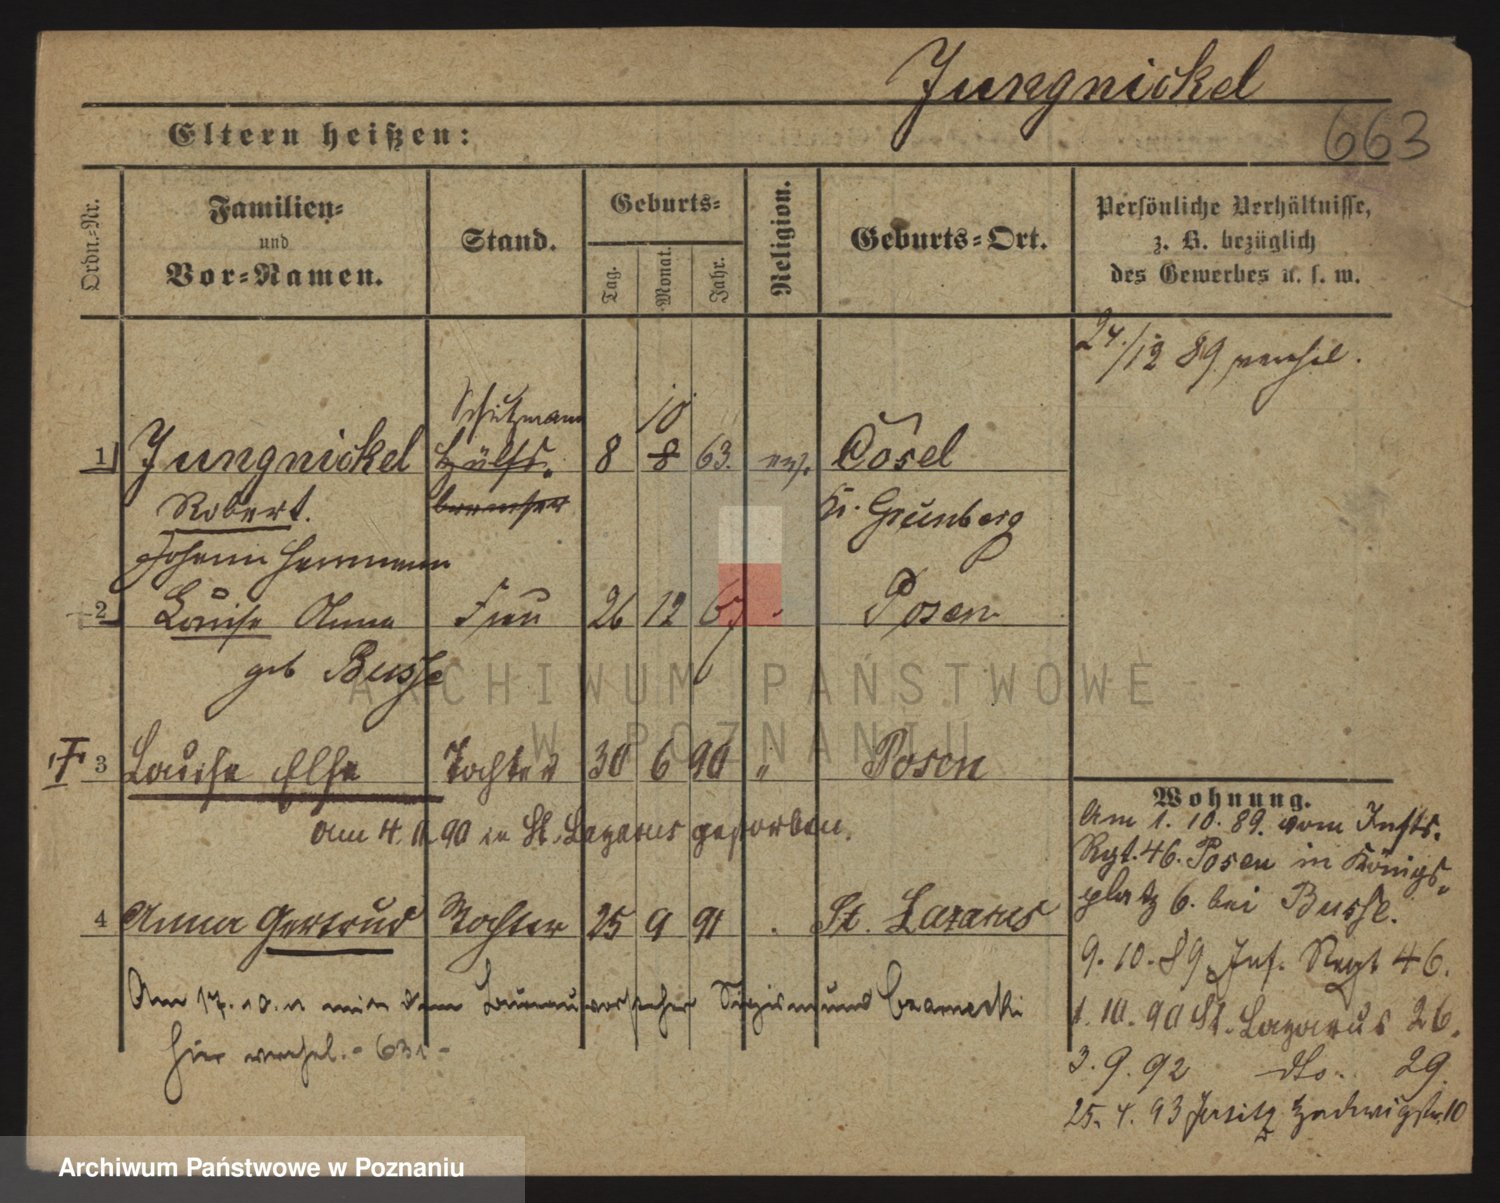 Jungnickel
663
Eltern heißen:
Ordn.-Nr.
Familien-
und
Vor-Namen.
Stand.
Geburts-
Tag.
Monat.
Jahr.
Religion.
Geburts-Ort.
Persönliche Verhältnisse,
z. B. bezüglich
des Gewerbes u. s. w.
24./12 89 verehel.
Schutzmann
10
1 Jungnickel Hülfs- 8 8 63. ev. Cosel
Robert. bremser Kr. Grünberg
Johann Hermann
2 Louise Anna Frau 26 12 67 Posen
geb Busse
3 Louise Else Tochter 30 6 90 " Posen
Am 4. 11. 90 in St. Lazarus gestorben.
4 Anna Gertrud Tochter 25 9 91 St. Lazarus
Am 17. 10. 11 mit dem Bureauvorsteher Sigismund
hier verehel. - 631 -
Wohnung.
Am 1. 10. 89. vom Inftr.
Rgt. 46. Posen in Königs-
platz 6. bei Busse.
9. 10. 89. Inf. Regt 46.
1. 10. 90 St. Lazarus 26.
3. 9. 92 dto. 29.
25. 4. 93 Jersitz Hedwigstr. 10
ARCHIWUM PAŃSTWOWE
W POZNANIU
Archiwum Państwowe w Poznaniu